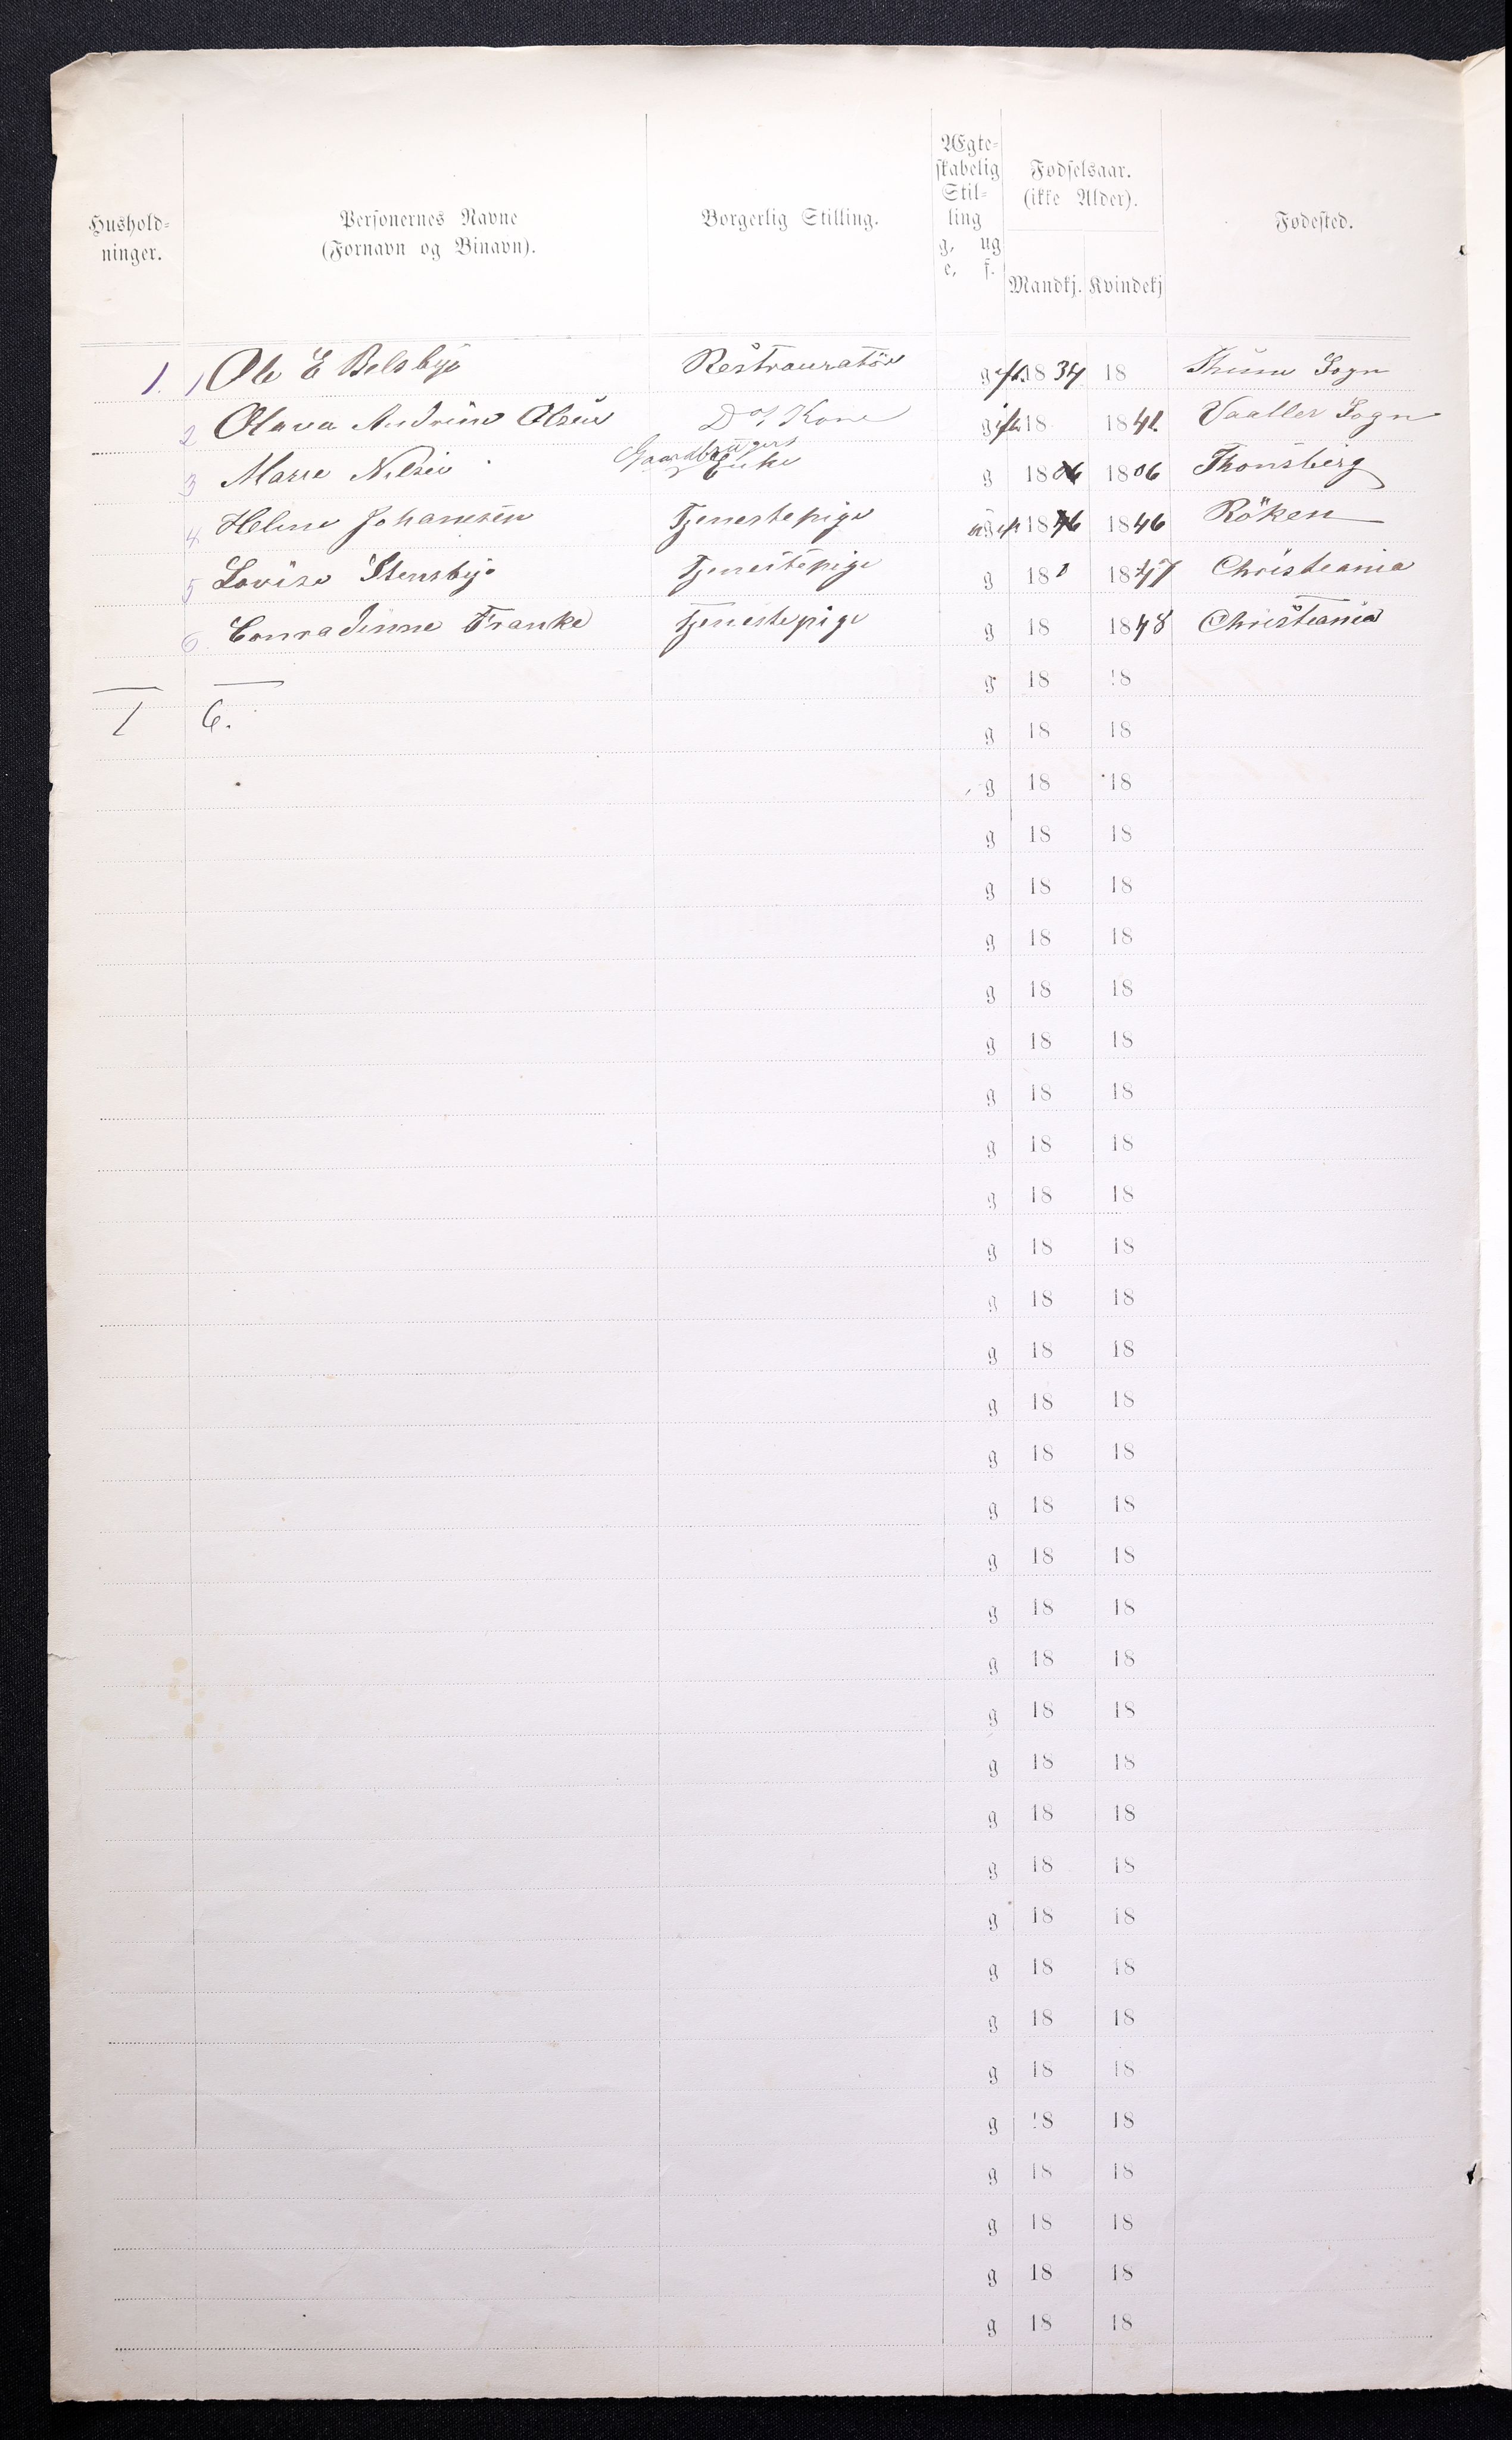 Hushold-
ninger.
Personernes Navne
(Fornavn og Binavn).
Borgerlig Stilling.
Ægte-
skabelig
Stil-
ling
g, ug
e, f.
Fødselsaar.
(ikke Alder).
Mandkj. Kvindekj
Fødested.
1. 1 Ole E Belsbye Restrauratör gift. 1834 18 Thune Sogn
2 Olava Andrine Olsen Do Kone gift. 18 1841 Vaaller Sogn
Gaardbrugers
3 Marie Nilsen Enke g 18 1806 Thönsberg
4 Heline Johansen Tjenestepige 18 1846 Röken
5 Lovise Stensbye Tjenestepige g 18 1847 Christeania
6. Conradinne Franke Tjenestepige g 18 1848 Christeania
g 18 18
1 6.
g 18 18
g 18 18
g 18 18
g 18 18
g 18 18
g 18 18
g 18 18
g 18 18
g 18 18
g 18 18
g 18 18
g 18 18
g 18 18
g 18 18
g 18 18
g 18 18
g 18 18
g 18 18
g 18 18
g 18 18
g 18 18
g 18 18
g 18 18
g 18 18
g 18 18
g 18 18
g 18 18
g 18 18
g 18 18
g 18 18
g 18 18
g 18 18